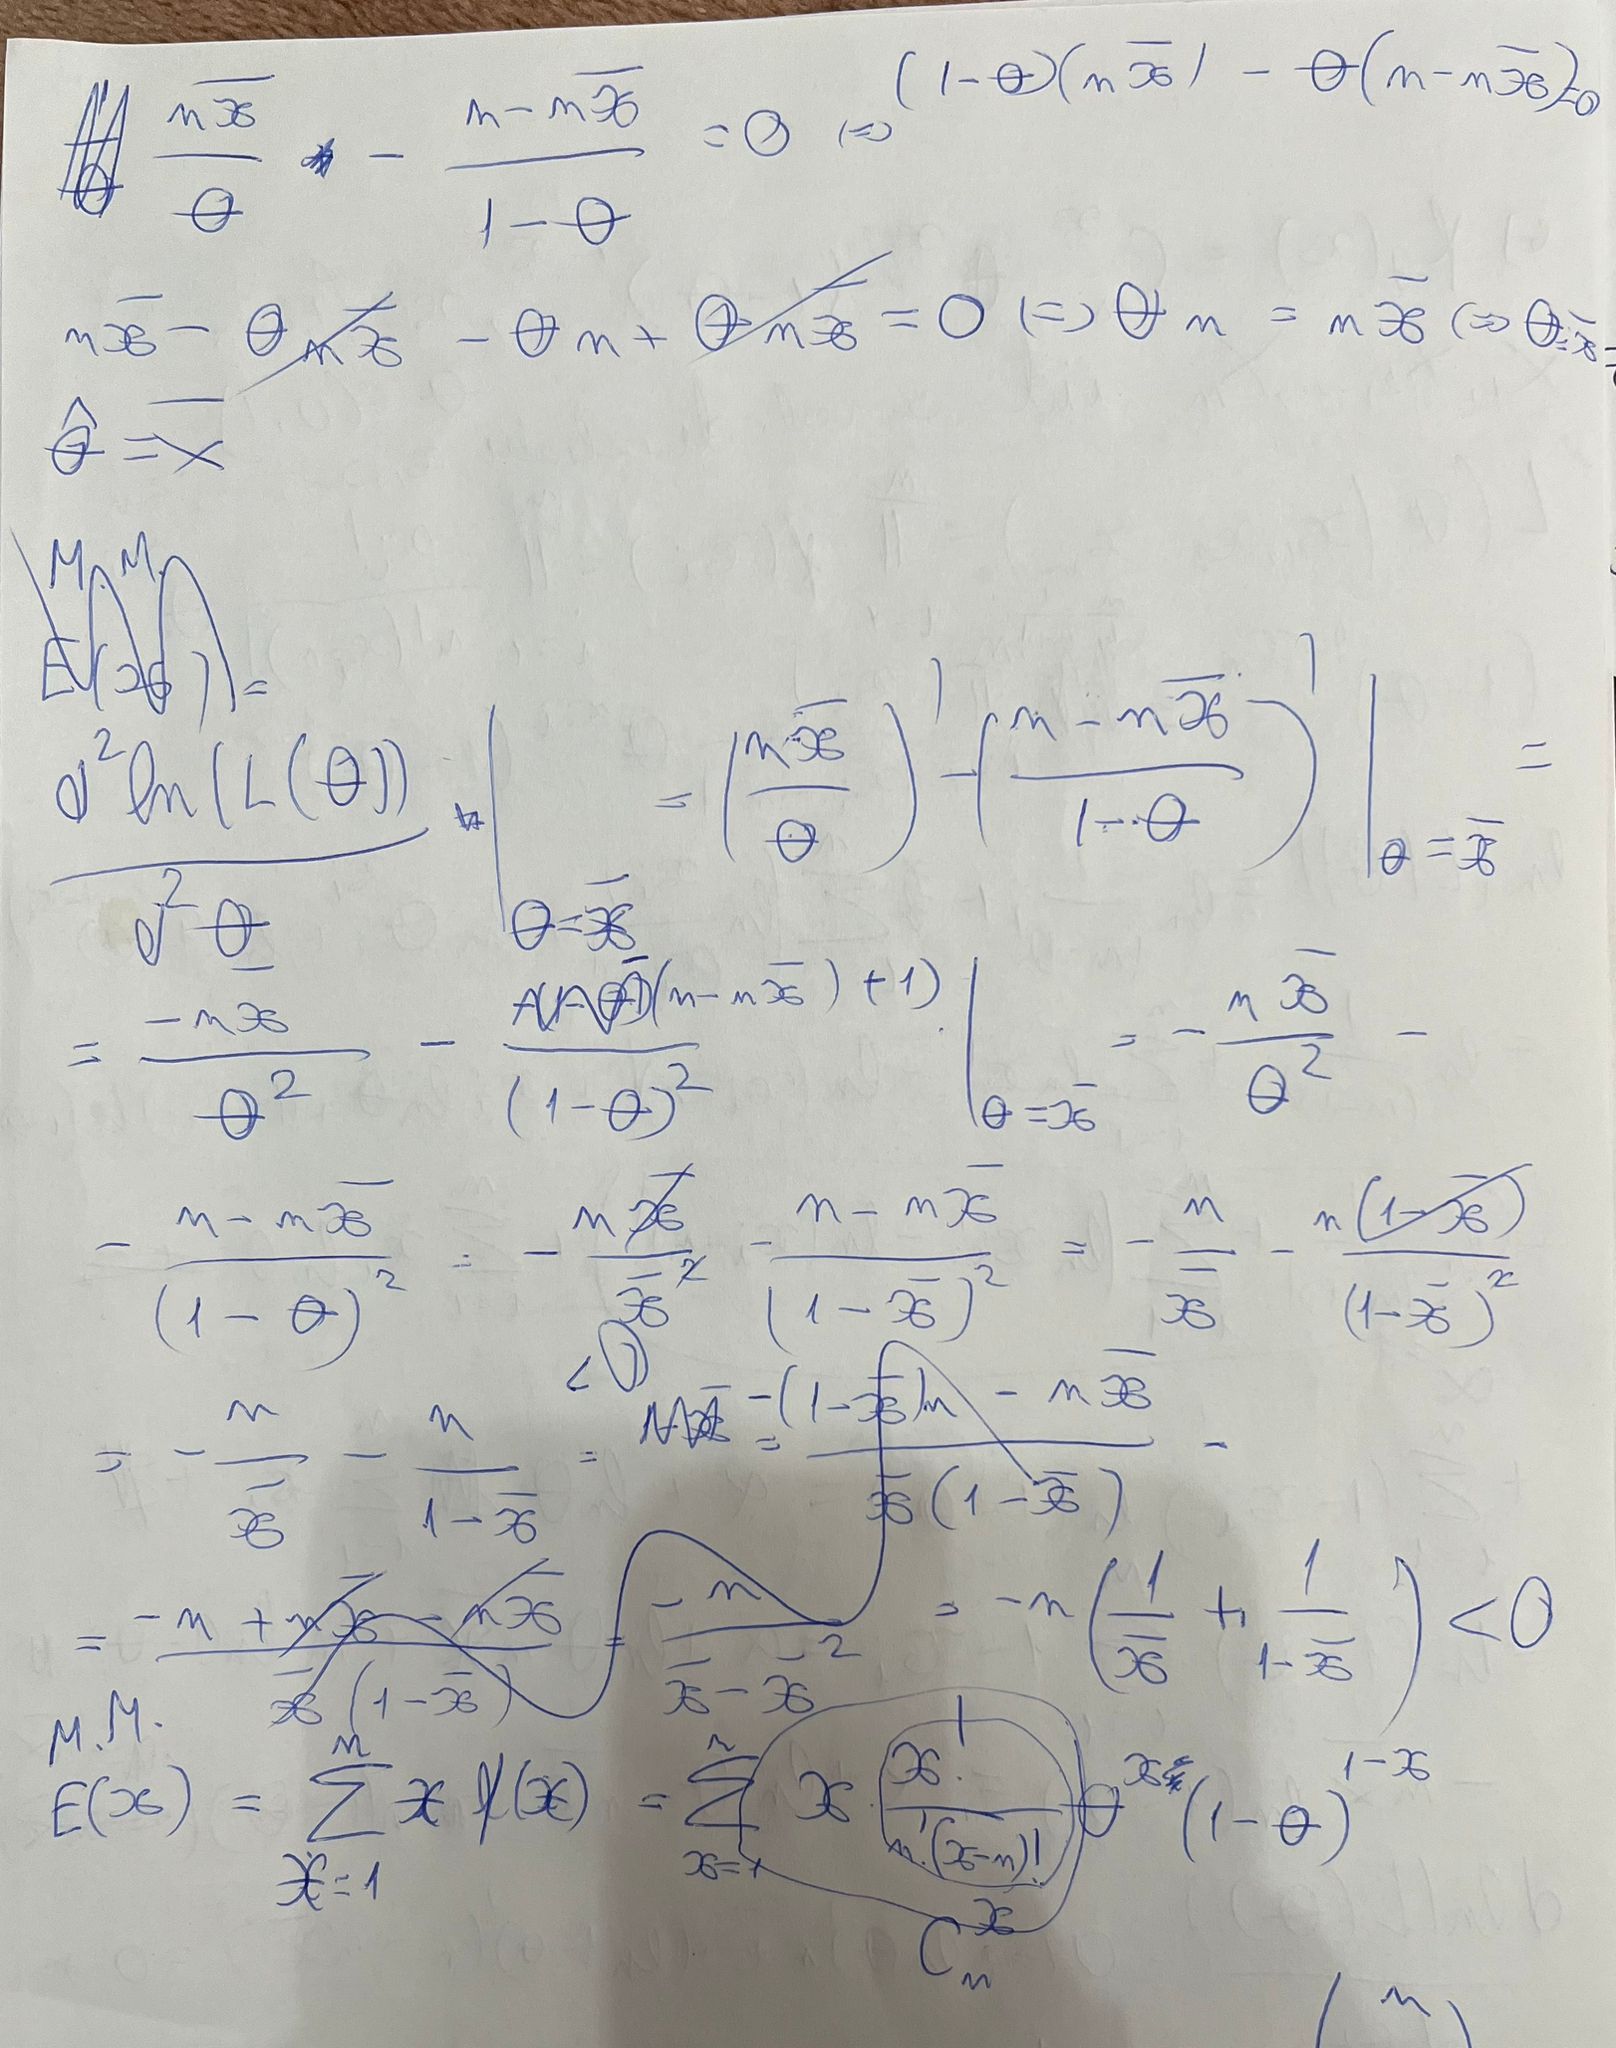 nx̄/θ - (n-nx̄)/(1-θ) = 0 (=> (1-θ)(nx̄) - θ(n-nx̄)=0
nx̄ - θnx̄ - θn + θnx̄ = 0 (=> θn = nx̄ (=> θ=x̄
θ̂ = x̄
M.M.
E(x) =
d² ln(L(θ))/d²θ |θ=x̄ = (nx̄/θ)' - ((n-nx̄)/(1-θ))' |θ=x̄ =
= -nx̄/θ² - (n-nx̄)(+1)/(1-θ)² |θ=x̄ = - nx̄/θ² -
- (n-nx̄)/(1-θ)² = - nx̄/x̄² - (n-nx̄)/(1-x̄)² = - n/x̄ - n(1-x̄)/(1-x̄)²
<0
= - n/x̄ - n/(1-x̄) = = (-(1-x̄)n - nx̄)/(x̄(1-x̄)) -
= (-n+nx̄-nx̄)/(x̄(1-x̄)) = -n/(x̄-x̄²) = -n(1/x̄ + 1/(1-x̄)) < 0
M.M.
E(x) = ∑ⁿₓ₌₁ x f(x) = ∑ⁿₓ₌₁ x x!/(n!(x-n)!) θˣ (1-θ)¹⁻ˣ
Cₙˣ
(n)